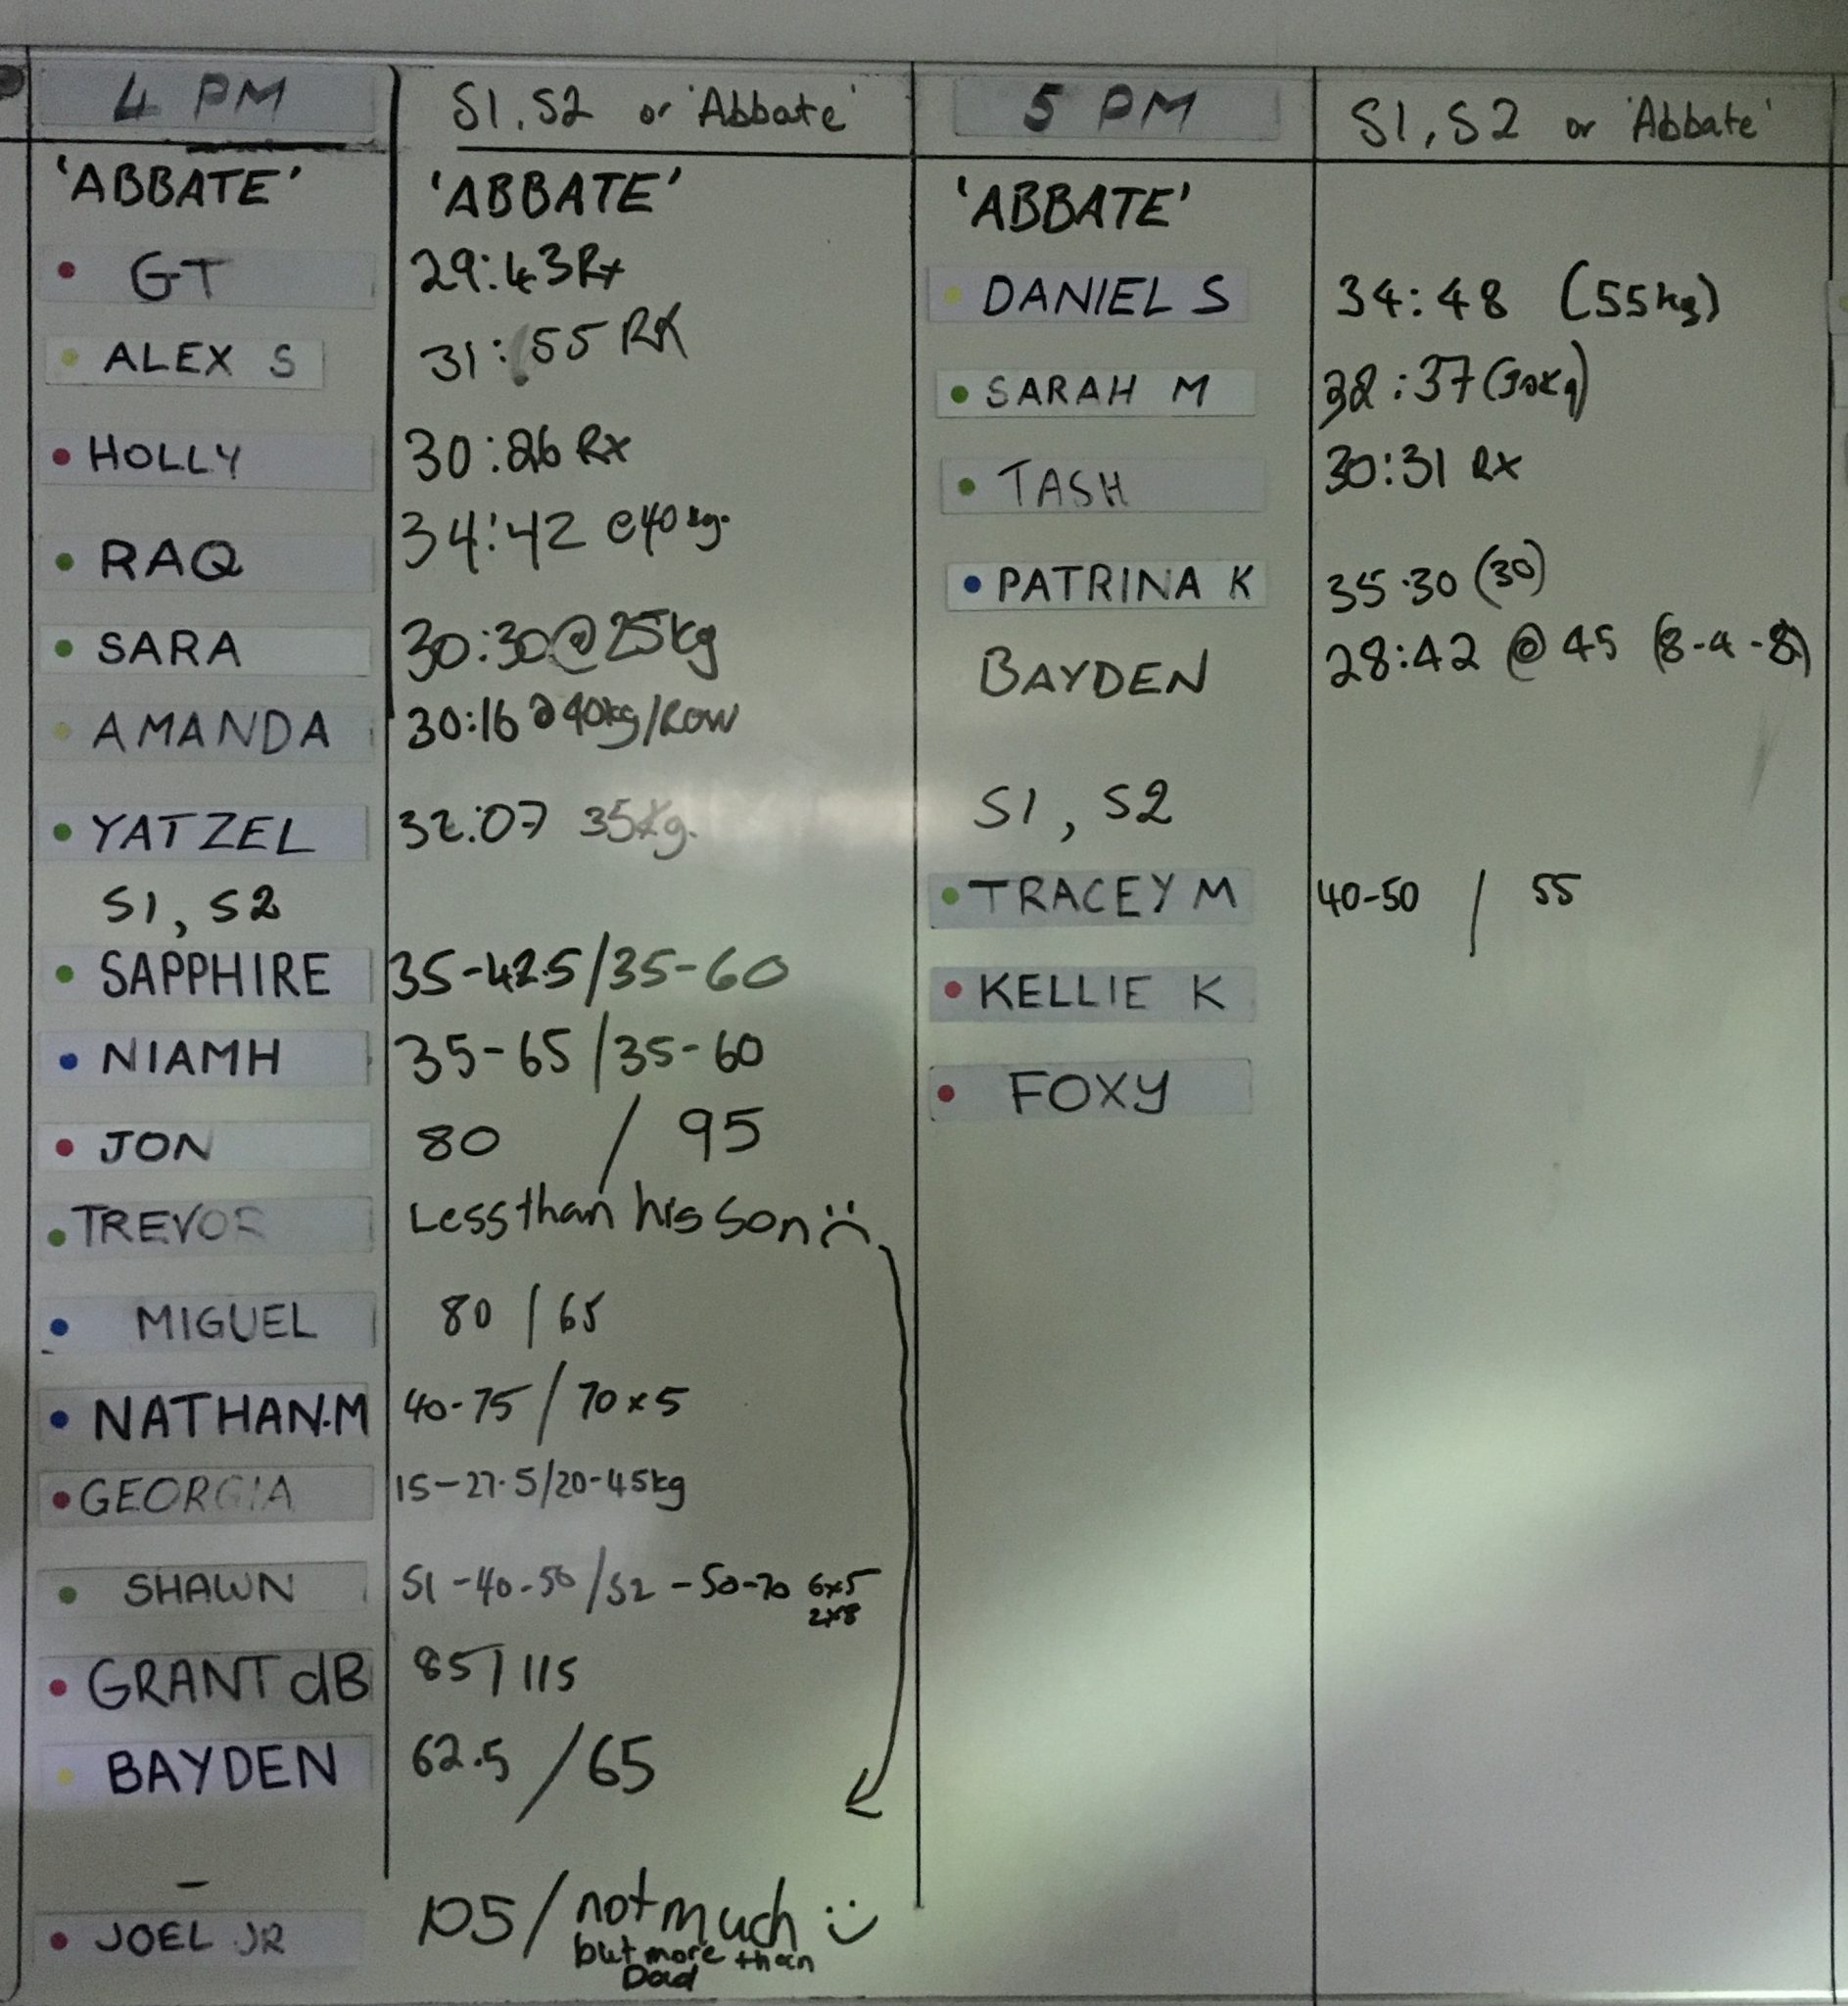 4 PM S1, S2 or 'Abbate' 5 PM S1, S2 or 'Abbate'
'ABBATE' 'ABBATE'
GT 29:43 Rx
ALEX S 31:55 RX
HOLLY 30:26 Rx
RAQ 34:42 @40kg.
SARA 30:30 @ 25kg
AMANDA 30:16 @ 40kg/Row
YATZEL 32:07 35Kg.
S1, S2
SAPPHIRE 35-42.5/35-60
NIAMH 35-65/35-60
JON 80 / 95
TREVOR Less than his son :(
MIGUEL 80 / 65
NATHAN.M 40-75 / 70x5
GEORGIA 15-27.5/20-45kg
SHAWN S1-40-50/S2-50-70 6x5
2x8
GRANT dB 85/115
BAYDEN 62.5 / 65
JOEL JR 105/not much :)
but more than
Dad
'ABBATE'
DANIEL S 34:48 (55kg)
SARAH M :37 (30Kg)
TASH 30:31 RX
PATRINA K 35.30 (30)
BAYDEN 28:42 @ 45 (8-4-8)
S1, S2
TRACEY M 40-50 / 55
KELLIE K
FOXY